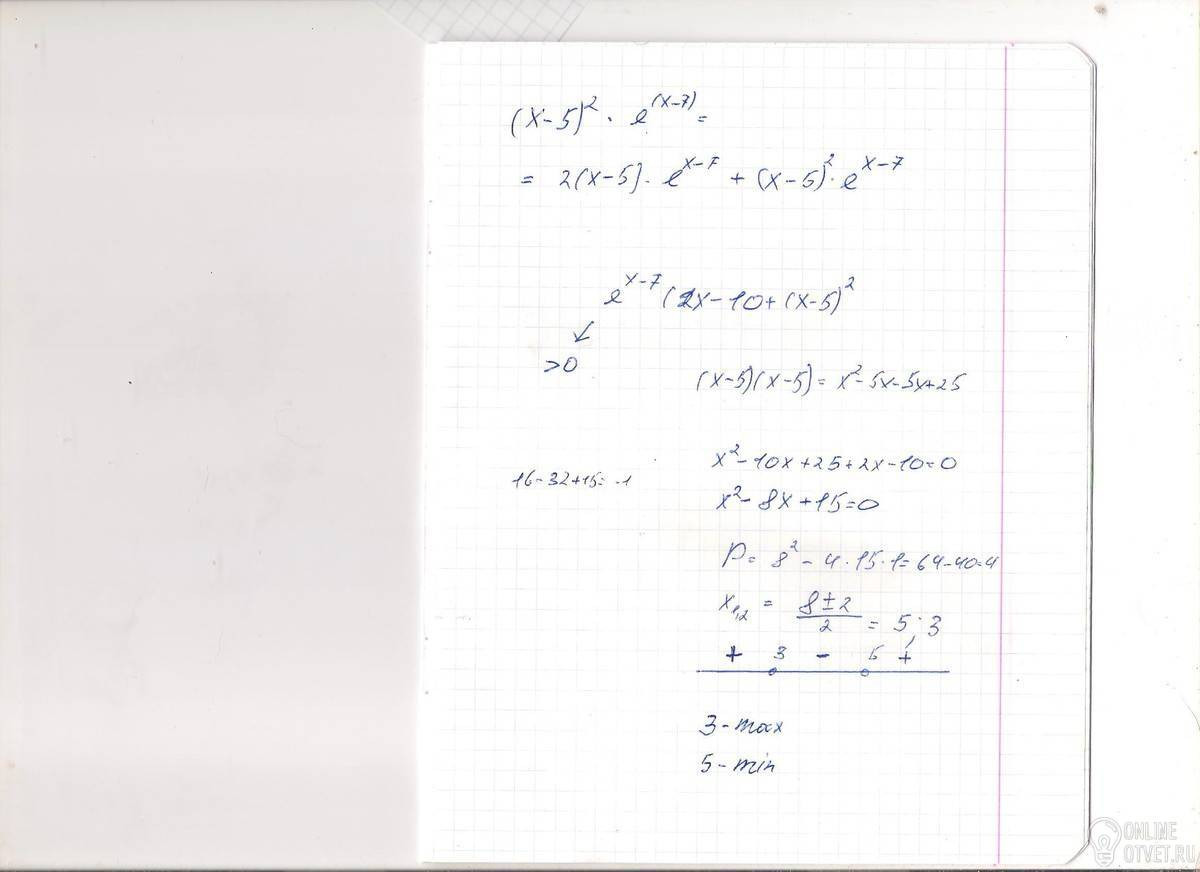 (x-5)² · e^(x-7) =
= 2(x-5) · e^x-7 + (x-5)² · e^x-7
e^x-7 (2x-10+(x-5)²
↙
>0
(x-5)(x-5) = x²-5x-5x+25
x²-10x+25+2x-10=0
16-32+15=-1
x²-8x+15=0
D= 8² - 4·15·1=64-40=4
x₁,₂ = 8±2/2 = 5; 3
+ 3 - 5 +
3-max
5-min
ONLINE
OTVET.RU